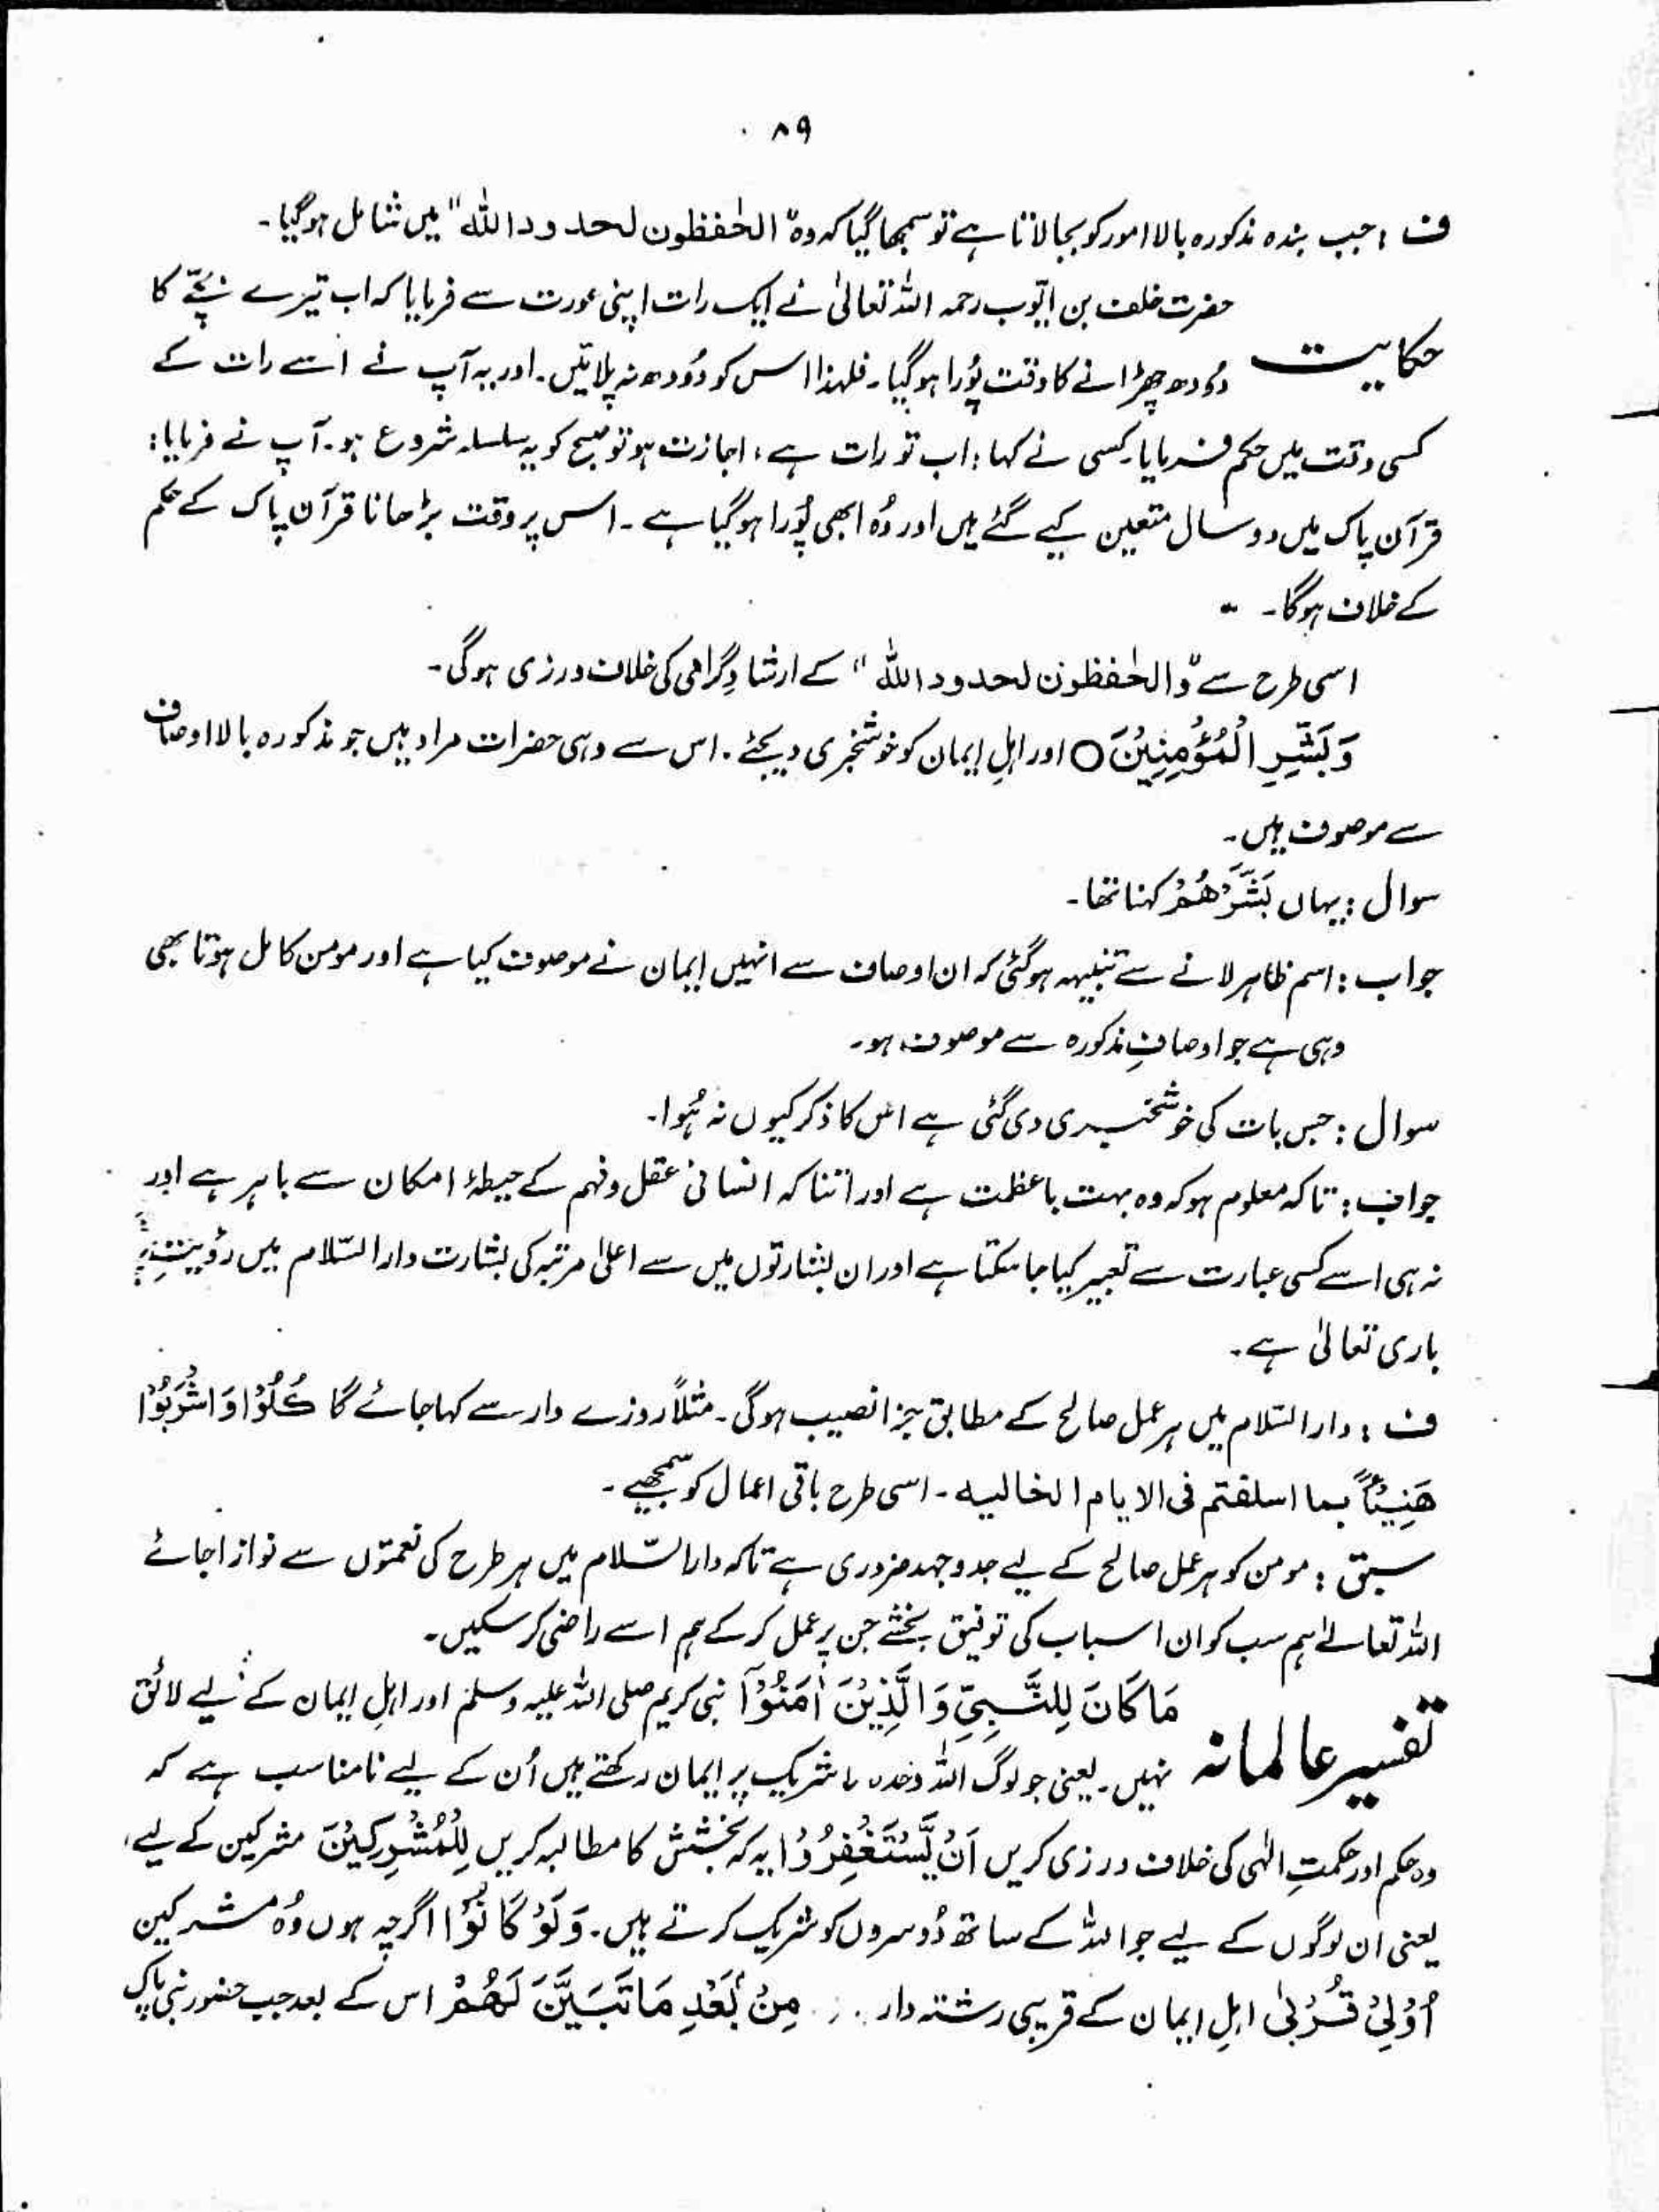 ۸۹
ف : جب بندہ مذکورہ بالا امور کو بجا لاتا ہے تو سمجھا گیا کہ وہ "الحٰفظون لحدود اللہ" میں شامل ہو گیا۔
حضرت خلف بن ایّوب رحمہ اللہ تعالیٰ نے ایک رات اپنی عورت سے فرمایا کہ اب تیرے بچّے کا
حکایت دُودھ چھڑانے کا وقت پُورا ہو گیا۔ فلہذا اس کو دُودھ نہ پلائیں۔ اور یہ آپ نے اسے رات کے
کسی وقت میں حکم فرمایا۔ کسی نے کہا : اب تو رات ہے، اجازت ہو تو صبح کو یہ سلسلہ شروع ہو۔ آپ نے فرمایا :
قرآن پاک میں دو سال متعین کیے گئے ہیں اور وُہ ابھی پُورا ہو گیا ہے۔ اس پر وقت بڑھانا قرآن پاک کے حکم
کے خلاف ہوگا۔
اسی طرح سے "والحٰفظون لحدود اللہ" کے ارشادِ گرامی کی خلاف ورزی ہوگی۔
وَبَشِّرِ الْمُؤْمِنِیْنَ ○ اور اہلِ ایمان کو خوشخبری دیجئے۔ اس سے وہی حضرات مراد ہیں جو مذکورہ بالا اوصاف
سے موصوف ہیں۔
سوال : یہاں بَشِّرْھُمْ کہنا تھا۔
جواب : اسم ظاہر لانے سے تنبیہہ ہو گئی کہ ان اوصاف سے انہیں ایمان نے موصوف کیا ہے اور مومن کامل ہوتا بھی
وہی ہے جو اوصافِ مذکورہ سے موصوف ہو۔
سوال : جس بات کی خوشخبری دی گئی ہے اس کا ذکر کیوں نہ ہُوا۔
جواب : تاکہ معلوم ہو کہ وہ بہت باعظمت ہے اور اتنا کہ انسانی عقل و فہم کے حیطۂ امکان سے باہر ہے اور
نہ ہی اسے کسی عبارت سے تعبیر کیا جا سکتا ہے اور ان بشارتوں میں سے اعلیٰ مرتبہ کی بشارت دار السّلام میں رؤیتِ
باری تعالیٰ ہے۔
ف : دار السّلام میں ہر عمل صالح کے مطابق جزا نصیب ہوگی۔ مثلاً روزے دار سے کہا جائے گا کُلُوْا وَاشْرَبُوْا
ھَنِیْٓئًا بما اسلفتم فی الایام الخالیہ۔ اسی طرح باقی اعمال کو سمجھیے۔
سبق : مومن کو ہر عمل صالح کے لیے جدوجہد ضروری ہے تاکہ دار السّلام میں ہر طرح کی نعمتوں سے نوازا جائے
اللہ تعالےٰ ہم سب کو ان اسباب کی توفیق بخشے جن پر عمل کر کے ہم اسے راضی کر سکیں۔
مَا کَانَ لِلنَّبِیِّ وَالَّذِیْنَ اٰمَنُوْٓا نبی کریم صلی اللہ علیہ وسلم اور اہلِ ایمان کے لیے لائق
تفسیر عالمانہ نہیں۔ یعنی جو لوگ اللہ وحدہ لا شریک پر ایمان رکھتے ہیں اُن کے لیے نامناسب ہے کہ
وہ حکم اور حکمتِ الٰہی کی خلاف ورزی کریں اَنْ یَّسْتَغْفِرُوْا یہ کہ بخشش کا مطالبہ کریں لِلْمُشْرِکِیْنَ مشرکین کے لیے،
یعنی ان لوگوں کے لیے جو اللہ کے ساتھ دُوسروں کو شریک کرتے ہیں۔ وَلَوْ کَانُوْٓا اگرچہ ہوں وُہ مشرکین
اُوْلِیْ قُرْبٰی اہلِ ایمان کے قریبی رشتہ دار . . . مِنْۢ بَعْدِ مَا تَبَیَّنَ لَھُمْ اس کے بعد جب حضور نبی پاک